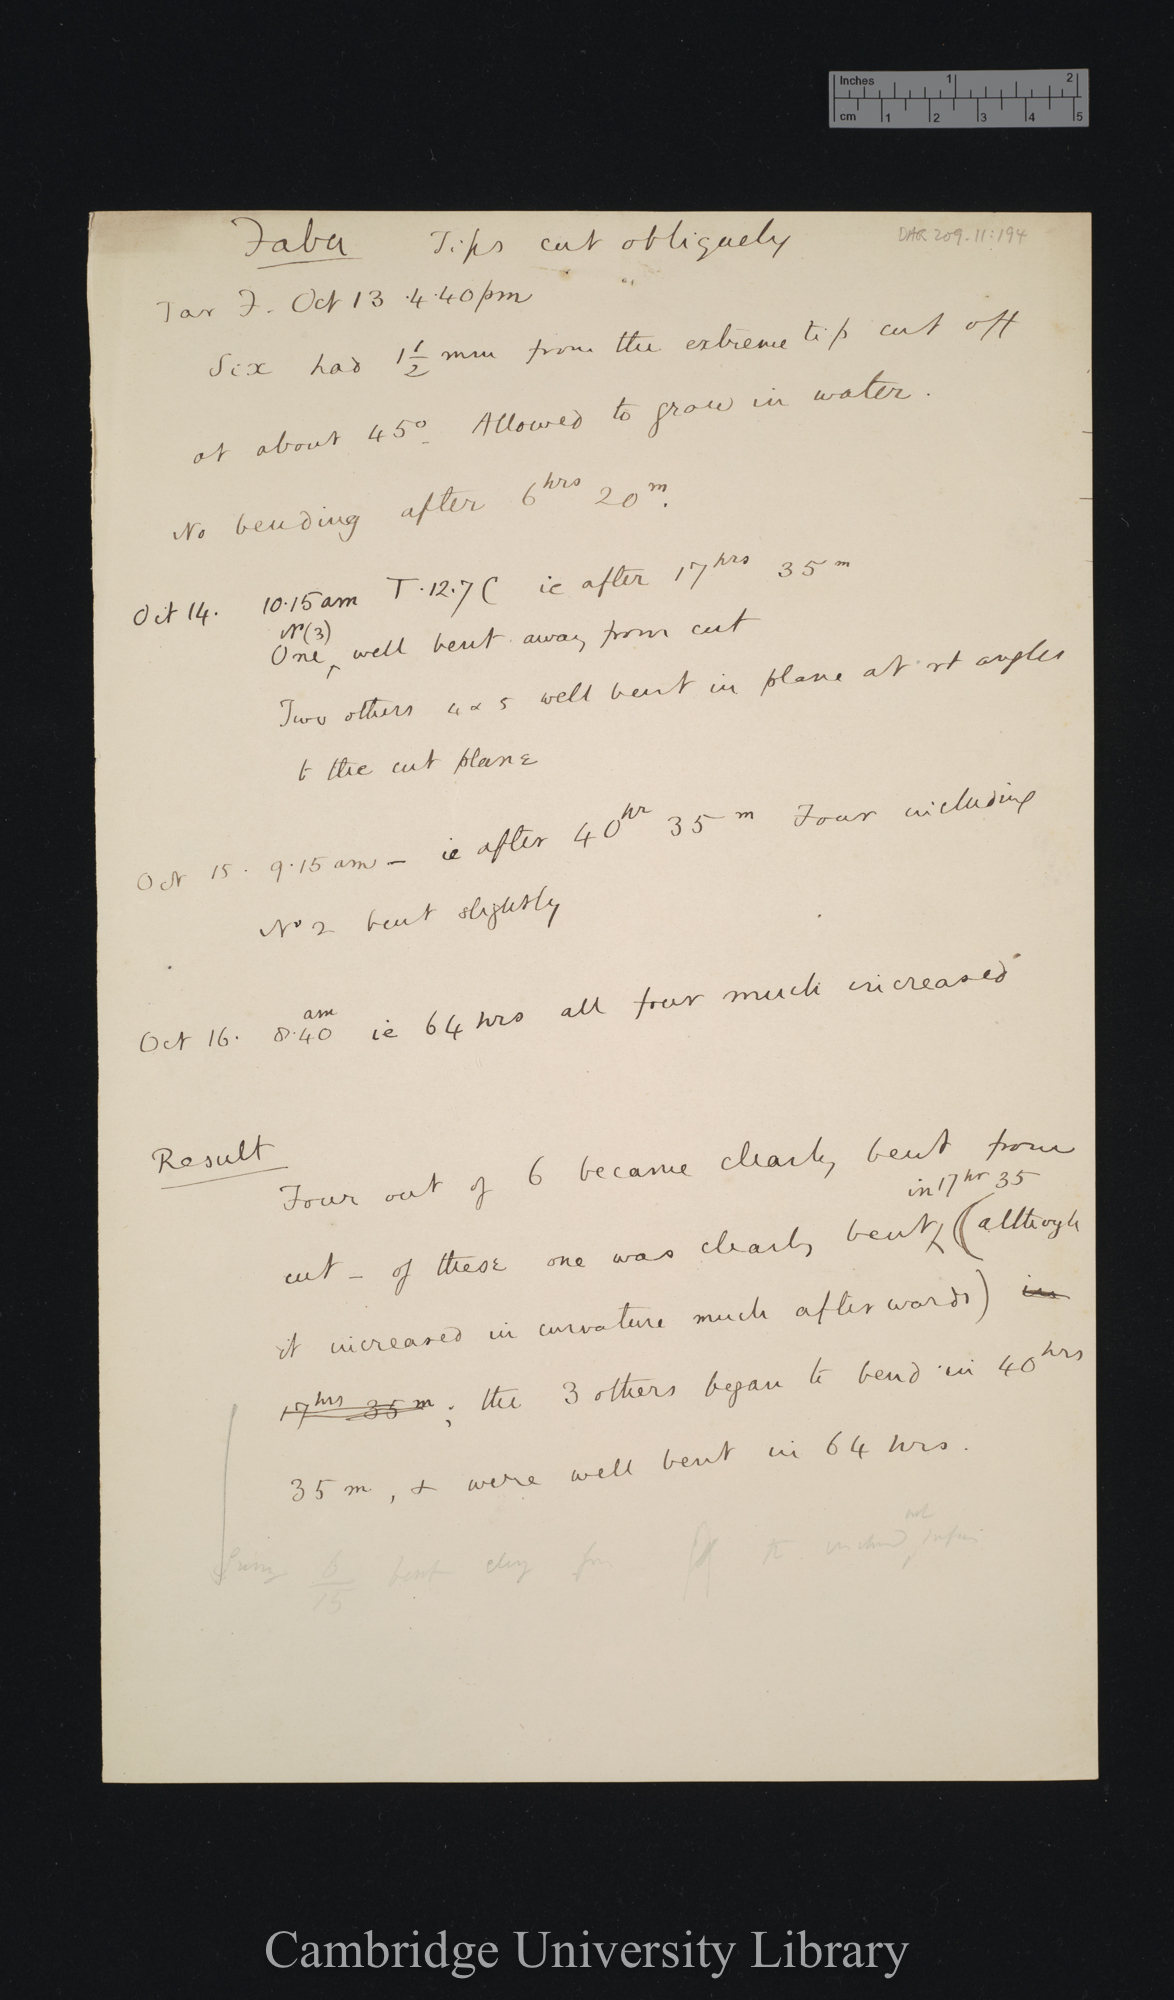 Inches 1 2
cm 1 2 3 4 5
Faba Tips cut obliquely DAR 209.11:194
Jar F. Oct 13 4.40pm
Six had 1 1/2 mm from the extreme tip cut off
at about 45°. Allowed to grow in water.
No bending after 6hrs 20m.
Oct 14. 10.15am T.12.7C ie after 17hrs 35m
No(3)
One, well bent away from cut
Two others 4 & 5 well bent in plane at rt angles
to the cut plane
Oct 15. 9.15am – ie after 40hr 35m Four including
No 2 bent slightly
am
Oct 16. 8.40 ie 64 hrs all four much increased
Result
Four out of 6 became clearly bent from
in 17hr 35
cut – of these one was clearly bent (although
it increased in curvature much afterwards) in
17hrs 35m; the 3 others began to bend in 40hrs
35m, & were well bent in 64 hrs.
6/15 bent
not
Cambridge University Library